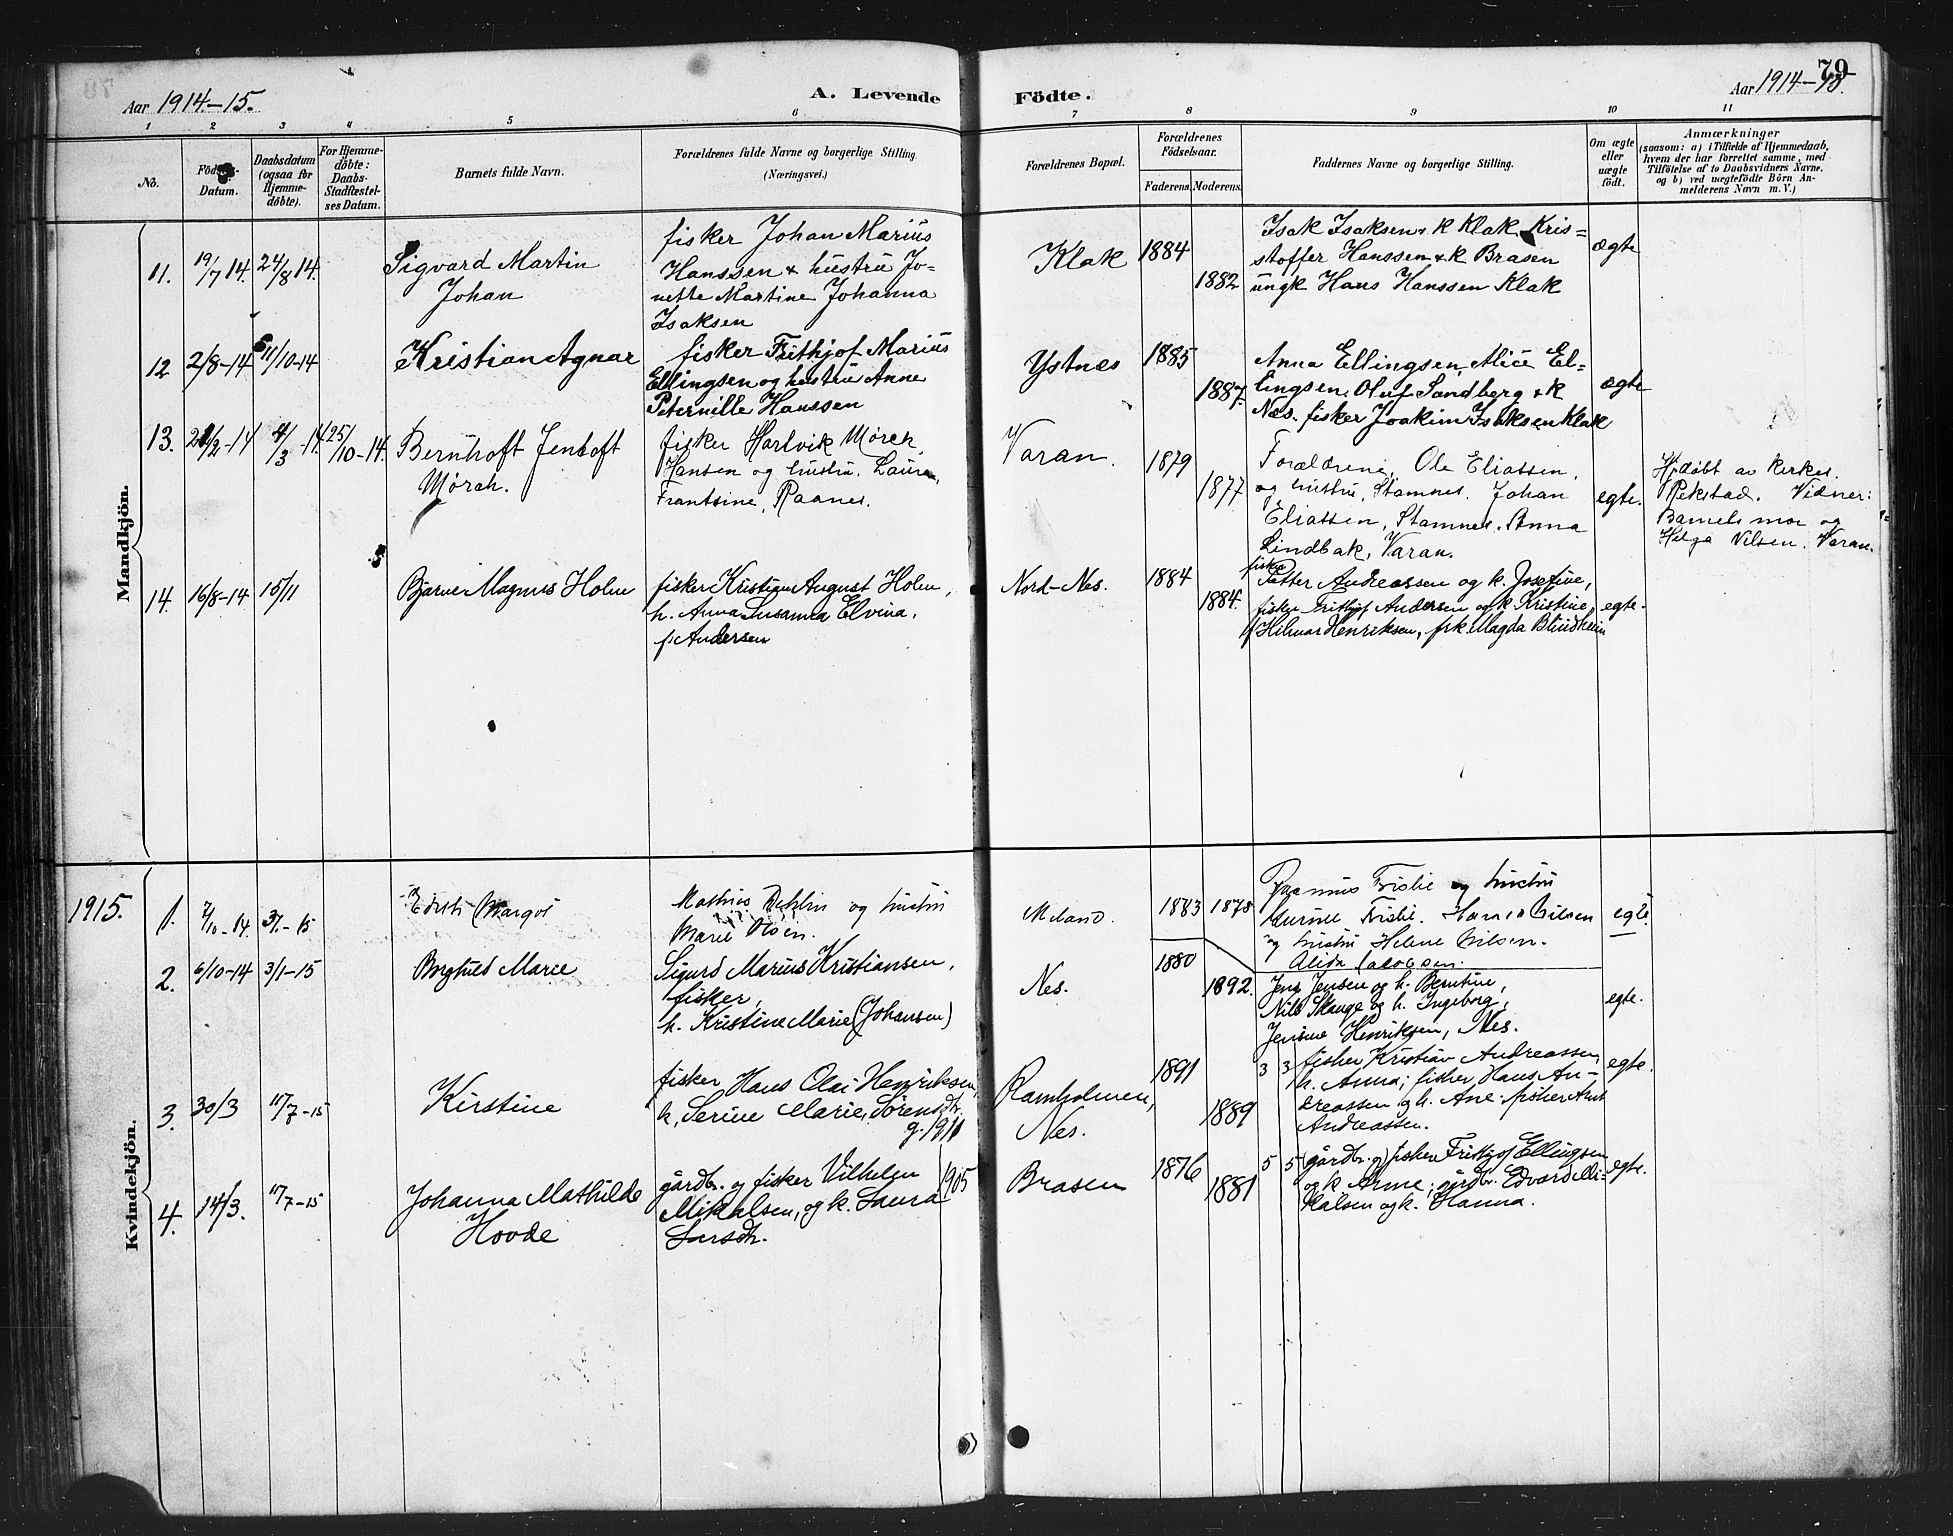 79
Aar 1914-15.
A. Levende
Födte.
Aar 1914-
1 2 3 4 5 6 7 8 9 10 11
No.
Datum.
Daabsdatum
(ogsaa for
Hjemme-
döbte).
For Hjemme-
döbte:
Daabs-
Stadfæstel-
ses Datum.
Barnets fulde Navn.
Forældrenes fulde Navne og borgerlige Stilling
(Næringsvei.)
Forældrenes Bopæl.
Forældrenes
Födselsaar.
Faderens.
Moderens.
Faddernes Navne og borgerlige Stilling.
Om ægte
eller
uægte
födt.
Anmærkninger
(saasom: a) i Tilfælde af Hjemmedaab,
hvem der har forrettet samme, med
Tilföielse af to Daabsvidners Navne,
og b) ved uægtefödte Börn An-
melderens Navn m. V.)
Mandkjön.
11.
19/7 14.
24/8 14.
Sigvard Martin
Johan
fisker Johan Marius
Hanssen & hustru Jo-
nette Martine Johanna
Isaksen
Klak
1884
1882
Isak Isaksen & k Klak Kris=
stoffer Hanssen & k Brasen
ungk Hans Hanssen Klak
ægte
12
2/8-14.
11/10-14
Kristian Agnar
fisker Frithjof Marius
Ellingsen og hustru Anne
Peternille Hanssen
Ystnæs
1885
1887.
Anna Ellingsen, Alice El=
lingsen, Oluf Sandberg & k
Næs. fisker Joakim Isaksen Klak
ægte
13.
4/3 -14.
25/10-14.
Bernhoft Jentoft
Mørch.
fisker Hartvik Mørch
Hansen og hustru, Laura
Frantsine, Raanes.
Varan.
1879
1877
Forældrene, Ole Eliassen,
og hustru, Stamnes. Johan
Eliassen, Stamnes. Anna
Lindbak, Varan.
egte.
Hj.døbt av kirkes.
Rekstad. Vidner:
Barnets mor og
Helga Nilsen. Varan.
14.
16/8-14
15/11
Bjarne Magnus Holm
fisker Kristian August Holm,
h. Anna Susanna Elvina,
f. Andersen
Nord-Nes.
1884
1884.
fisker
Petter Andreassen og k. Josefine,
fisker Frithjof Andersen og k Kristine,
f Hilmar Henriksen, frk. Magda Blindheim
egte.
1915.
Kvindekjön.
1.
7/10-14.
3/1-15
Margot
og hustru
Marie Olsen.
Meland.
1883
1878
Rasmus Frislie og hustru
Frislie. Nilsen
og hustru Helene Nilsen.
Alida Jacobsen.
egte
2.
6/10-14
3/1-15
Borghild Marie
Sigurd Marius Kristiansen,
fisker,
h. Kristine Marie (Johansen)
Nes.
1880
1892.
Jens Jensen og h. Berntine,
Nils Skauge og h. Ingeborg,
Jensine Henriksen, Nes.
egte.
3.
30/3
11/7-15
Kirstine
fisker Hans Olai Henriksen,
h. Serine Marie Sørensdtr.
g. 1911
Ramholmen,
Nes.
1891
1889
3 3
fisker Kristian Andreassen,
h. Anna; fisker Hans An-
dreassen og h. Ane. fisker Arnt
Andreassen.
egte.
4.
14/3.
11/7-15
Johanna Mathilde
Hovde
gårdbr. og fisker Vilhelm
Mikalsen, og k. Laura
Larsdtr.
1905
Brasen
1876
1881
5 5
gårdbr. og fisker Frithjof Ellingsen
og k Anne; gårdbr. Edvard Mi-
kalsen og k. Hanna.
egte.